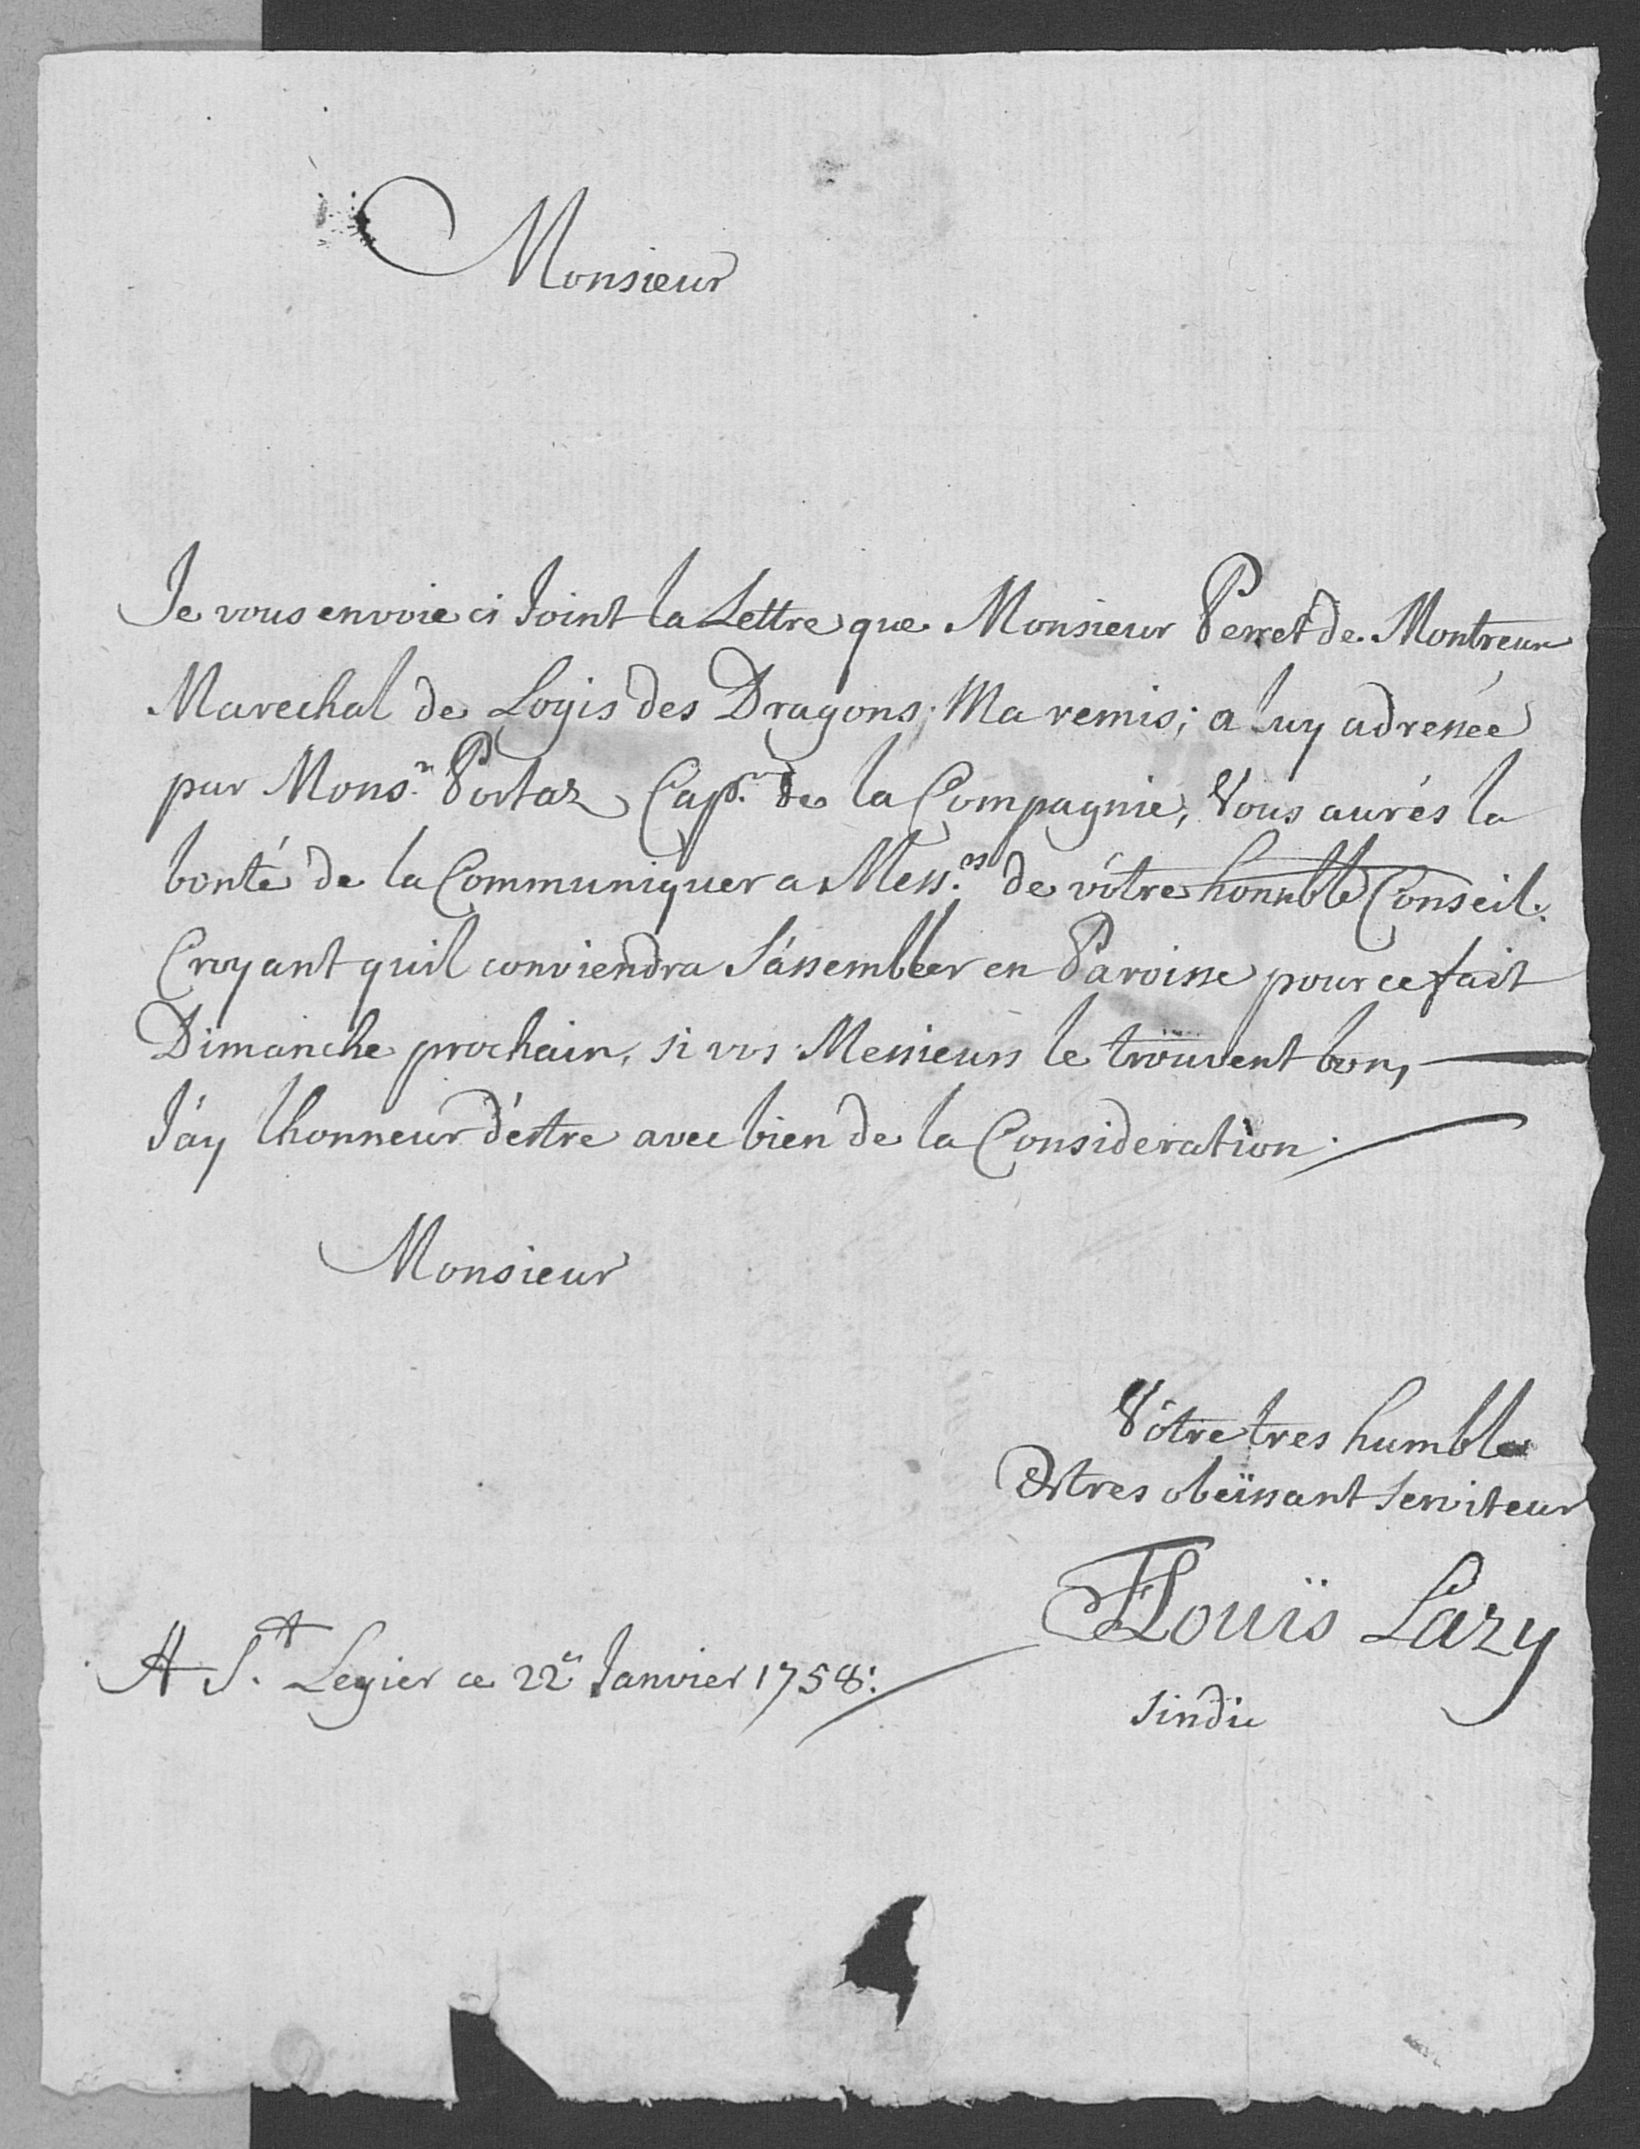 Monsieur
Je vous envoie ci Joint la Lettre que Monsieur Perret de Montreux
Marechal de Logis des Dragons; Ma remis; a luy adressée
par Mons.r Portaz Cap.n de la Compagnie, Vous aurés la
bonté de la Communiquer a Mess.rs de vôtre honnble Conseil.
Croyant quil conviendra S'assembler en Paroisse pour ce fait
Dimanche prochain, si vos Messieurs le trouvent bon,
J'ay lhonneur d'estre avec bien de la Consideration.
Monsieur
Vôtre tres humble
& tres obeïssant Serviteur
FLouïs Lazy
Sindic
A S.t Legier ce 22e Janvier 1758: